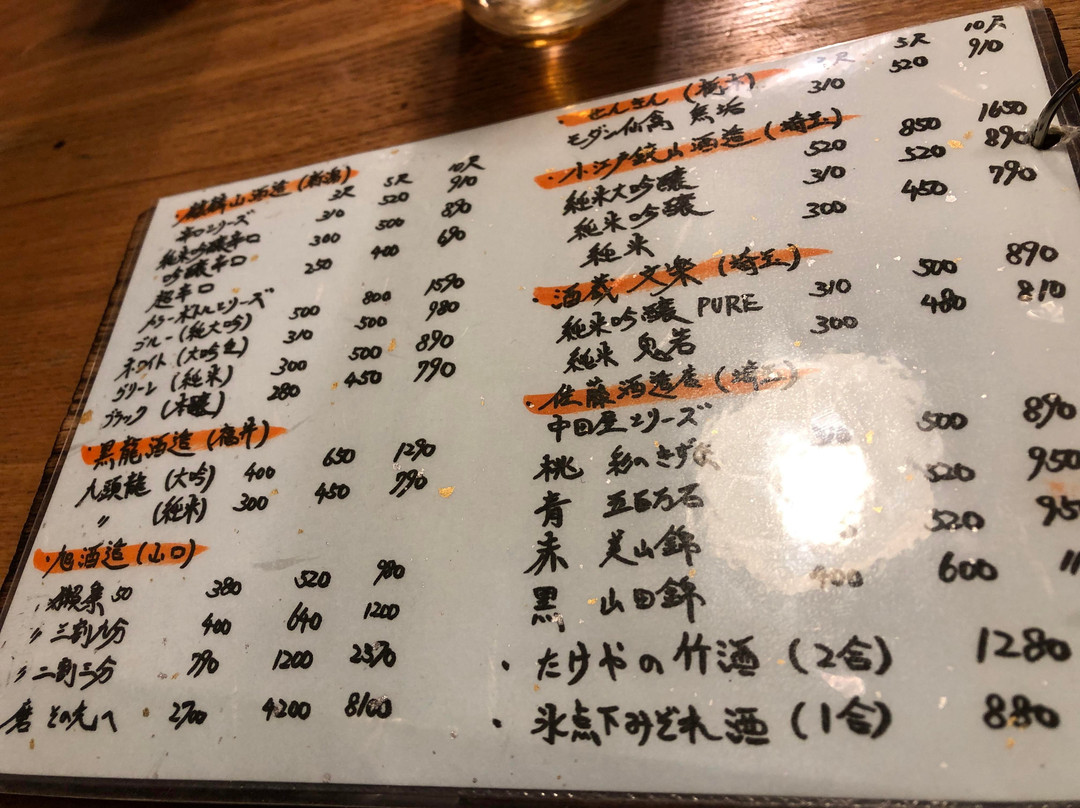 ・麒麟山酒造(新潟)
3尺 5尺 10尺
辛口シリーズ 310 520 910
純米吟醸辛口 300 500 890
吟醸辛口 250 400 690
超辛口
カラーボトルシリーズ
ブルー(純大吟) 500 800 1590
ホワイト(大吟 310 500 980
グリーン(純米) 300 500 890
ブラック(本醸) 280 450 790
・黒龍酒造(福井)
八頭龍(大吟) 400 650 1290
〃(純米) 300 450 790
・旭酒造(山口)
獺祭50 380 520 980
〃三割九分 400 640 1200
〃二割三分 790 1200 2370
磨 その先へ 2700 4200 8100
3尺 5尺 10尺
・せんきん(栃木)
モダン仙禽 無垢 310 520 910
・小江戸鏡山酒造(埼玉)
純米大吟醸 520 850 1650
純米吟醸 310 520 890
純米 300 450 790
・酒蔵 文楽(埼玉)
純米吟醸 PURE 310 500 890
純米 鬼若 300 480 810
・佐藤酒造店(埼玉)
中田屋シリーズ
桃 彩のきずな 500 890
青 五百万石 520 950
赤 美山錦 520
黒 山田錦 400 600
・たけやの竹酒(2合) 1280
・氷点下みぞれ酒(1合) 880